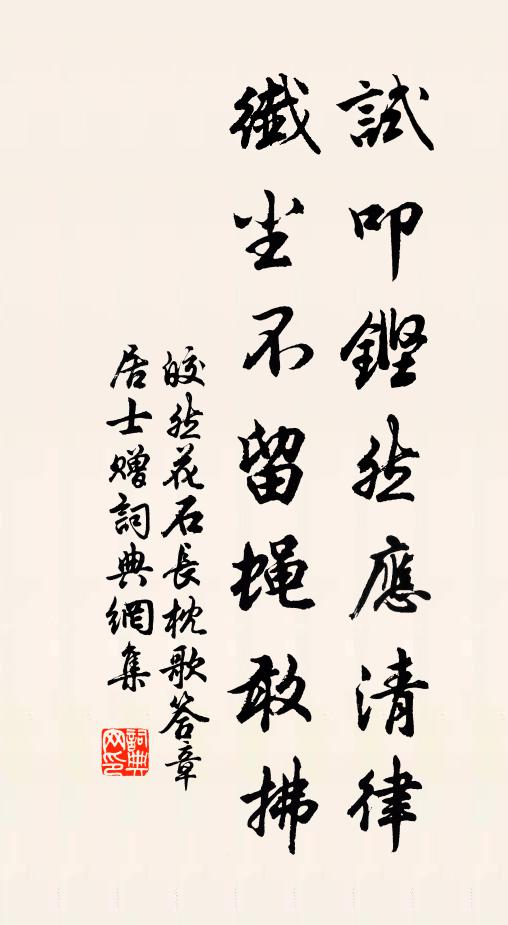 試叩鏗然應清律
纖尘不留蝇敢拂
皎然花石長枕歌答章
居士贈詞典網集
詞典网印